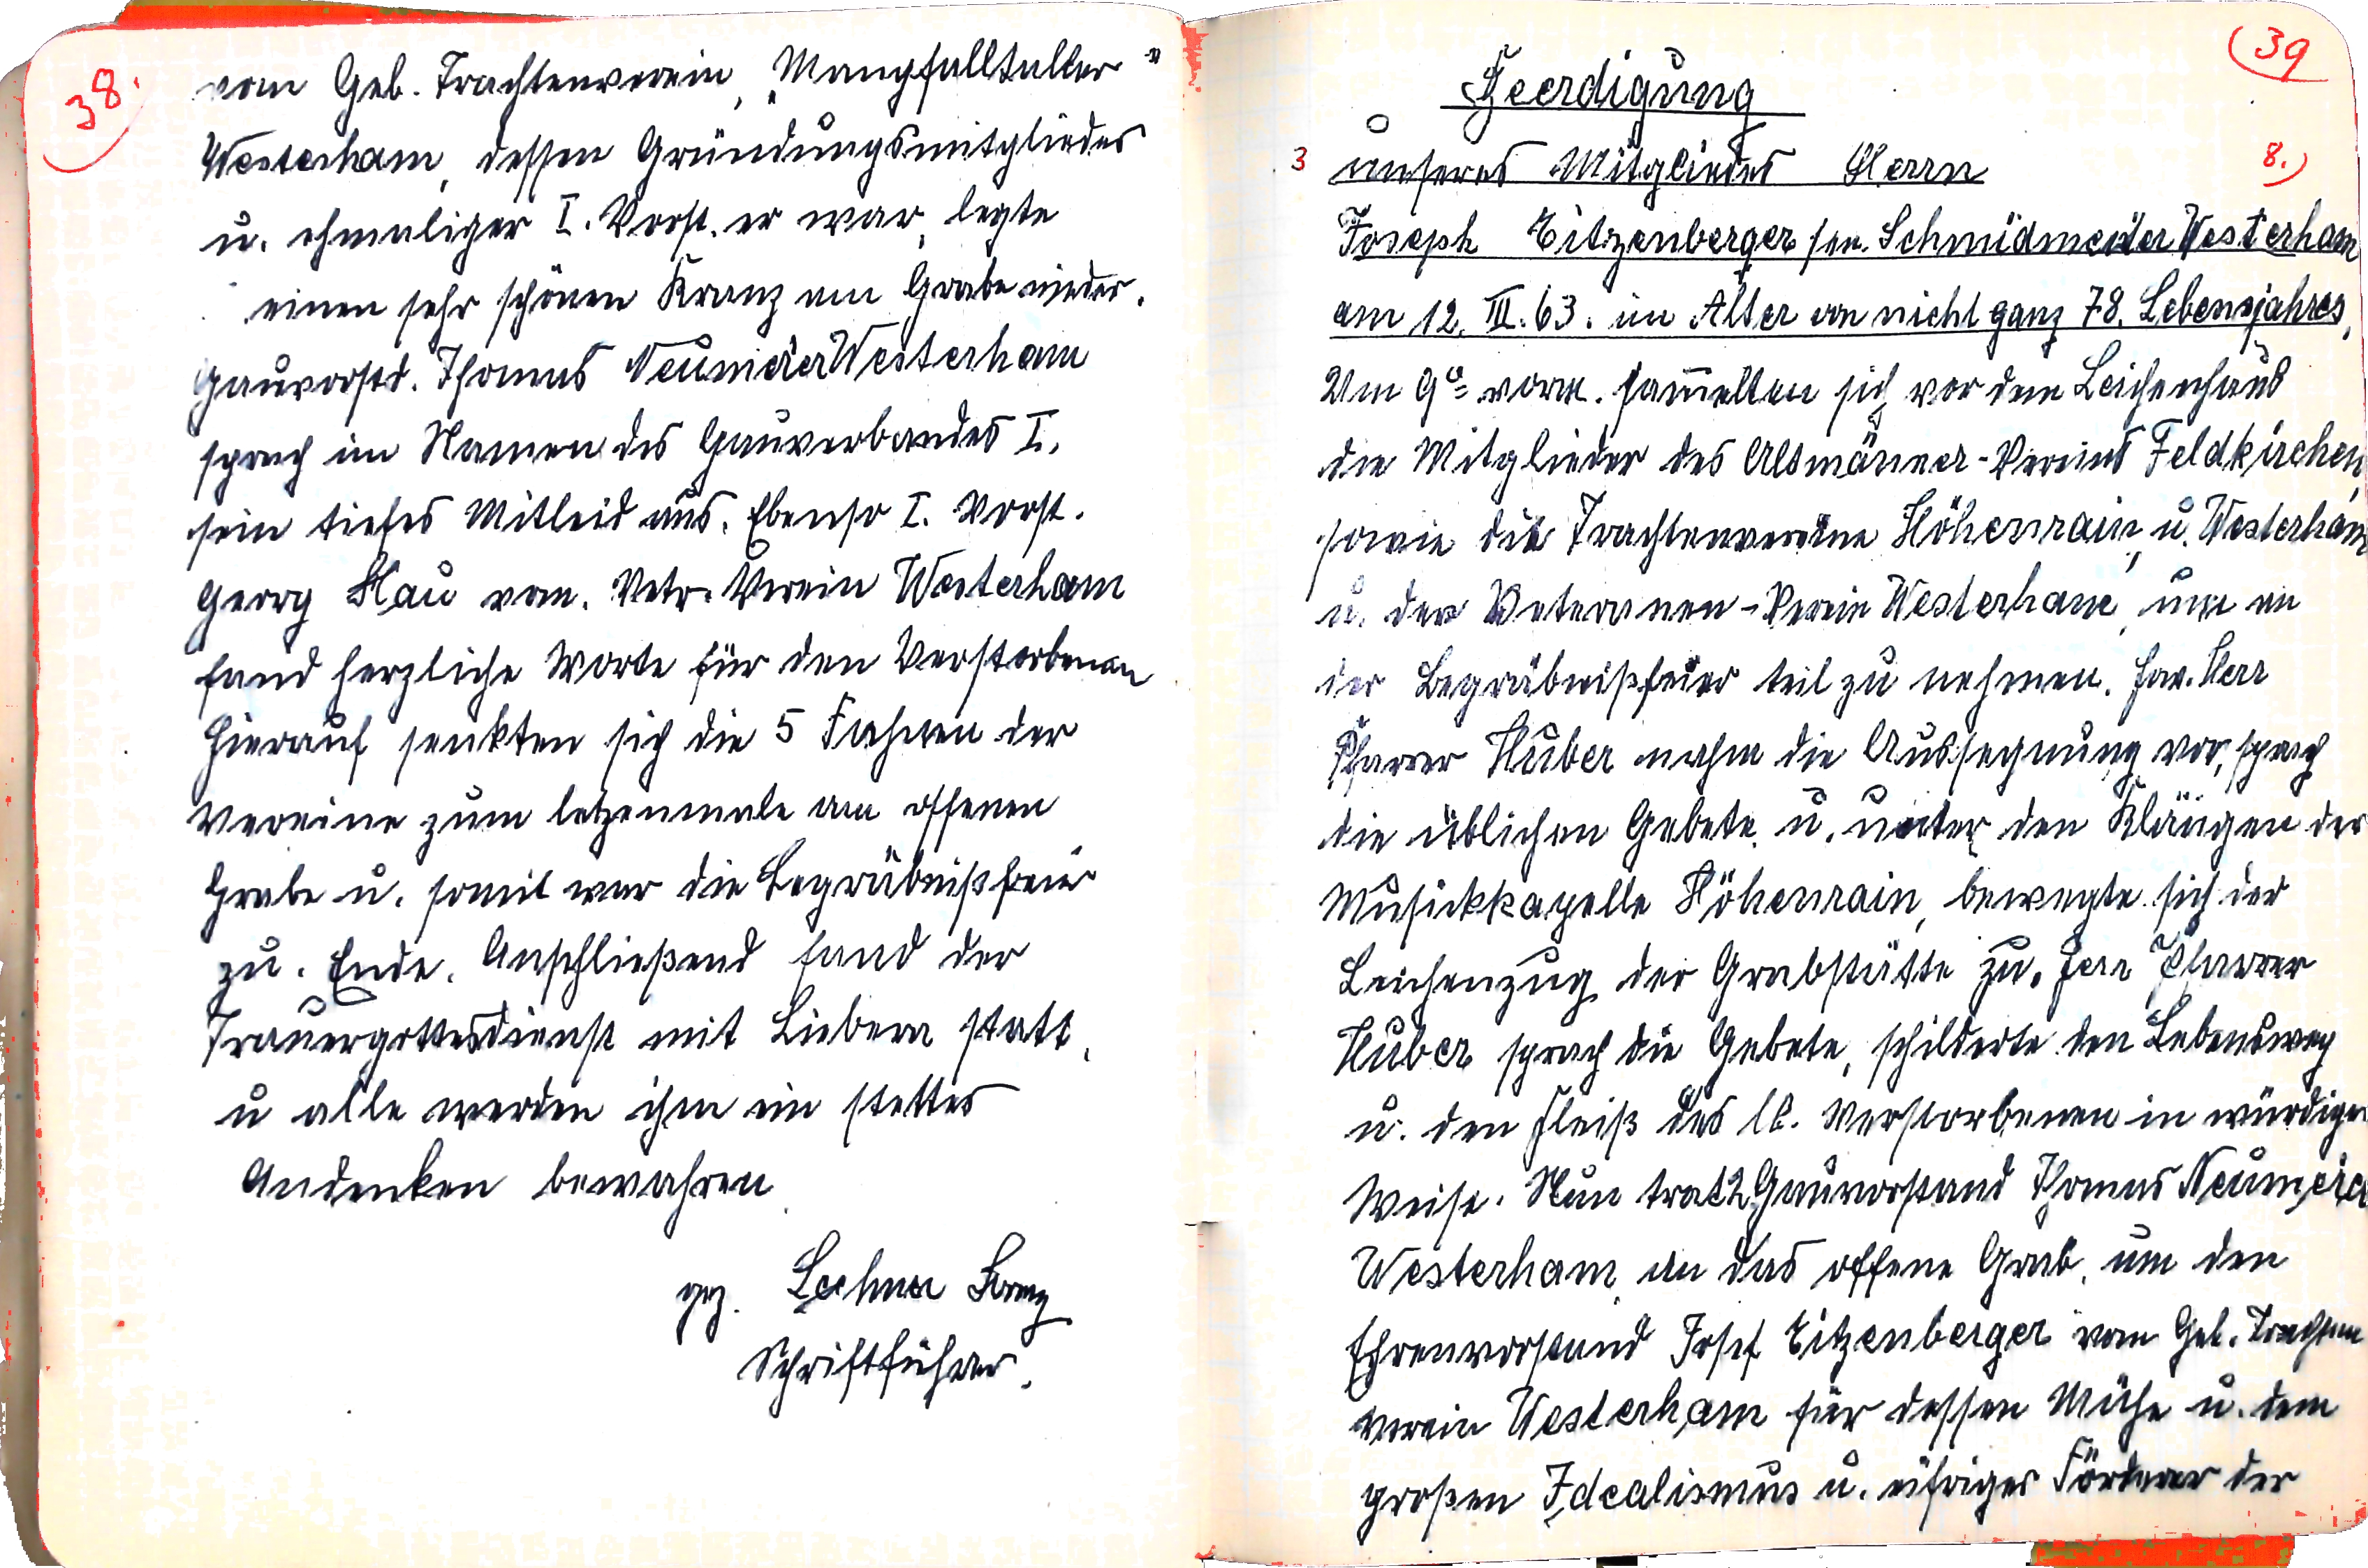 38.
vom Geb. Trachtenverein, „Mangfalltaller"
Westerham, dessen Gründungsmitglieder
u. ehmaliger I. Vorst. er war, legte
einen sehr schönen Kranz am Grabe nieder.
Gauvorstd. Thomas Neumeier Westerham
sprach im Namen des Gauverbandes I.
sein tiefes Mitleid aus. Ebenso I. Vorst.
Georg Hau vom. Vetr. Verein Westerham
fand herzliche Worte für den Verstorbenen
Hierauf senkten sich die 5 Fahnen der
Vereine zum letzenmale am offenen
Grabe u. somit war die Begräbnißfeier
zu. Ende. Anschließend fand der
Trauergottesdienst mit Libera statt,
u alle werden ihm ein stettes
Andenken bewahren
gez. Lechner Lorenz
Schriftführer.
39
Beerdigung
3 unseres Mitgliedes Herrn
8.)
Joseph Eitzenberger sen. Schmidmeister Westerham
am 12. III. 63. im Alter von nicht ganz 78. Lebensjahres,
Um 9 vorm. sam̅elten sich vor dem Leichenhaus
die Mitglieder des Altmänner-Vereins Feldkirchen,
sowie die Trachtenvereine Höhenrain, u. Westerham
u. der Veteranen-Verein Westerham, um an
der Begräbnißfeier teil zu nehmen. Herr
Pfarrer Huber nahm die Aussegnung vor, sprach
die üblichen Gebete u. unter den Klängen der
Musikkapelle Höhenrain, bewegte sich der
Leichenzug der Grabstätte zu. Herr Pfarrer
Huber sprach die Gebete, schilderte den Lebensweg
u. den Fleiß des lb. Verstorbenen in würdiger
Weise. Nun trat 2 Gauvorstand Thomas Neumeier
Westerham, an das offene Grab, um den
Ehrenvorstand Josef Eitzenberger vom Geb. Trachten
verein Westerham für dessen Mühe u. dem
großen Idealismus u. eifriger Förderer der